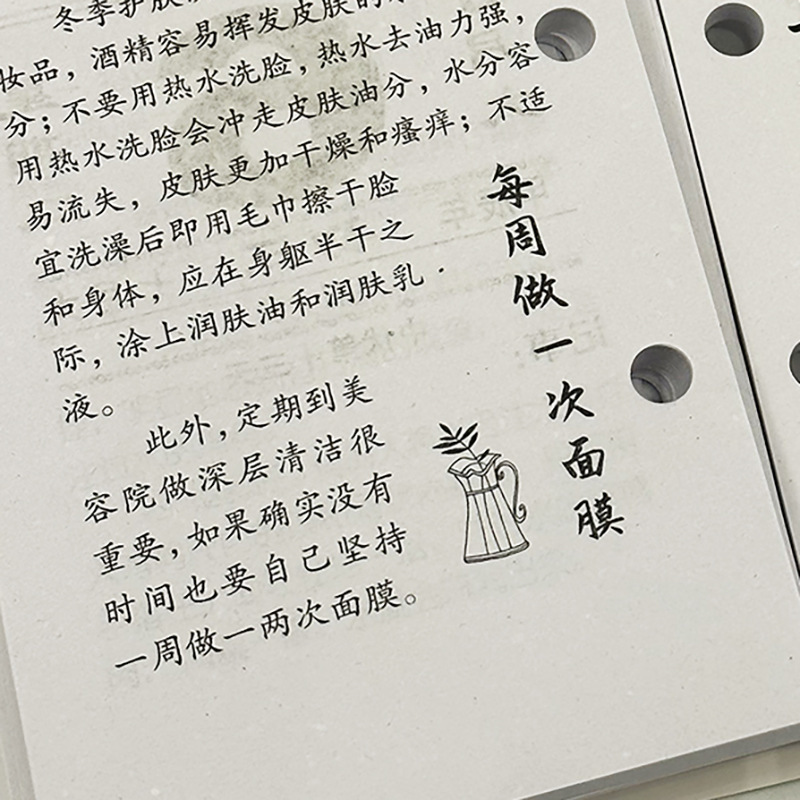 冬季护肤
妆品，酒精容易挥发皮肤的
分；不要用热水洗脸，热水去油力强，
用热水洗脸会冲走皮肤油分，水分容
易流失，皮肤更加干燥和瘙痒；不适
宜洗澡后即用毛巾擦干脸
和身体，应在身躯半干之
际，涂上润肤油和润肤乳
液。
此外，定期到美
容院做深层清洁很
重要，如果确实没有
时间也要自己坚持
一周做一两次面膜。
每周做一次面膜